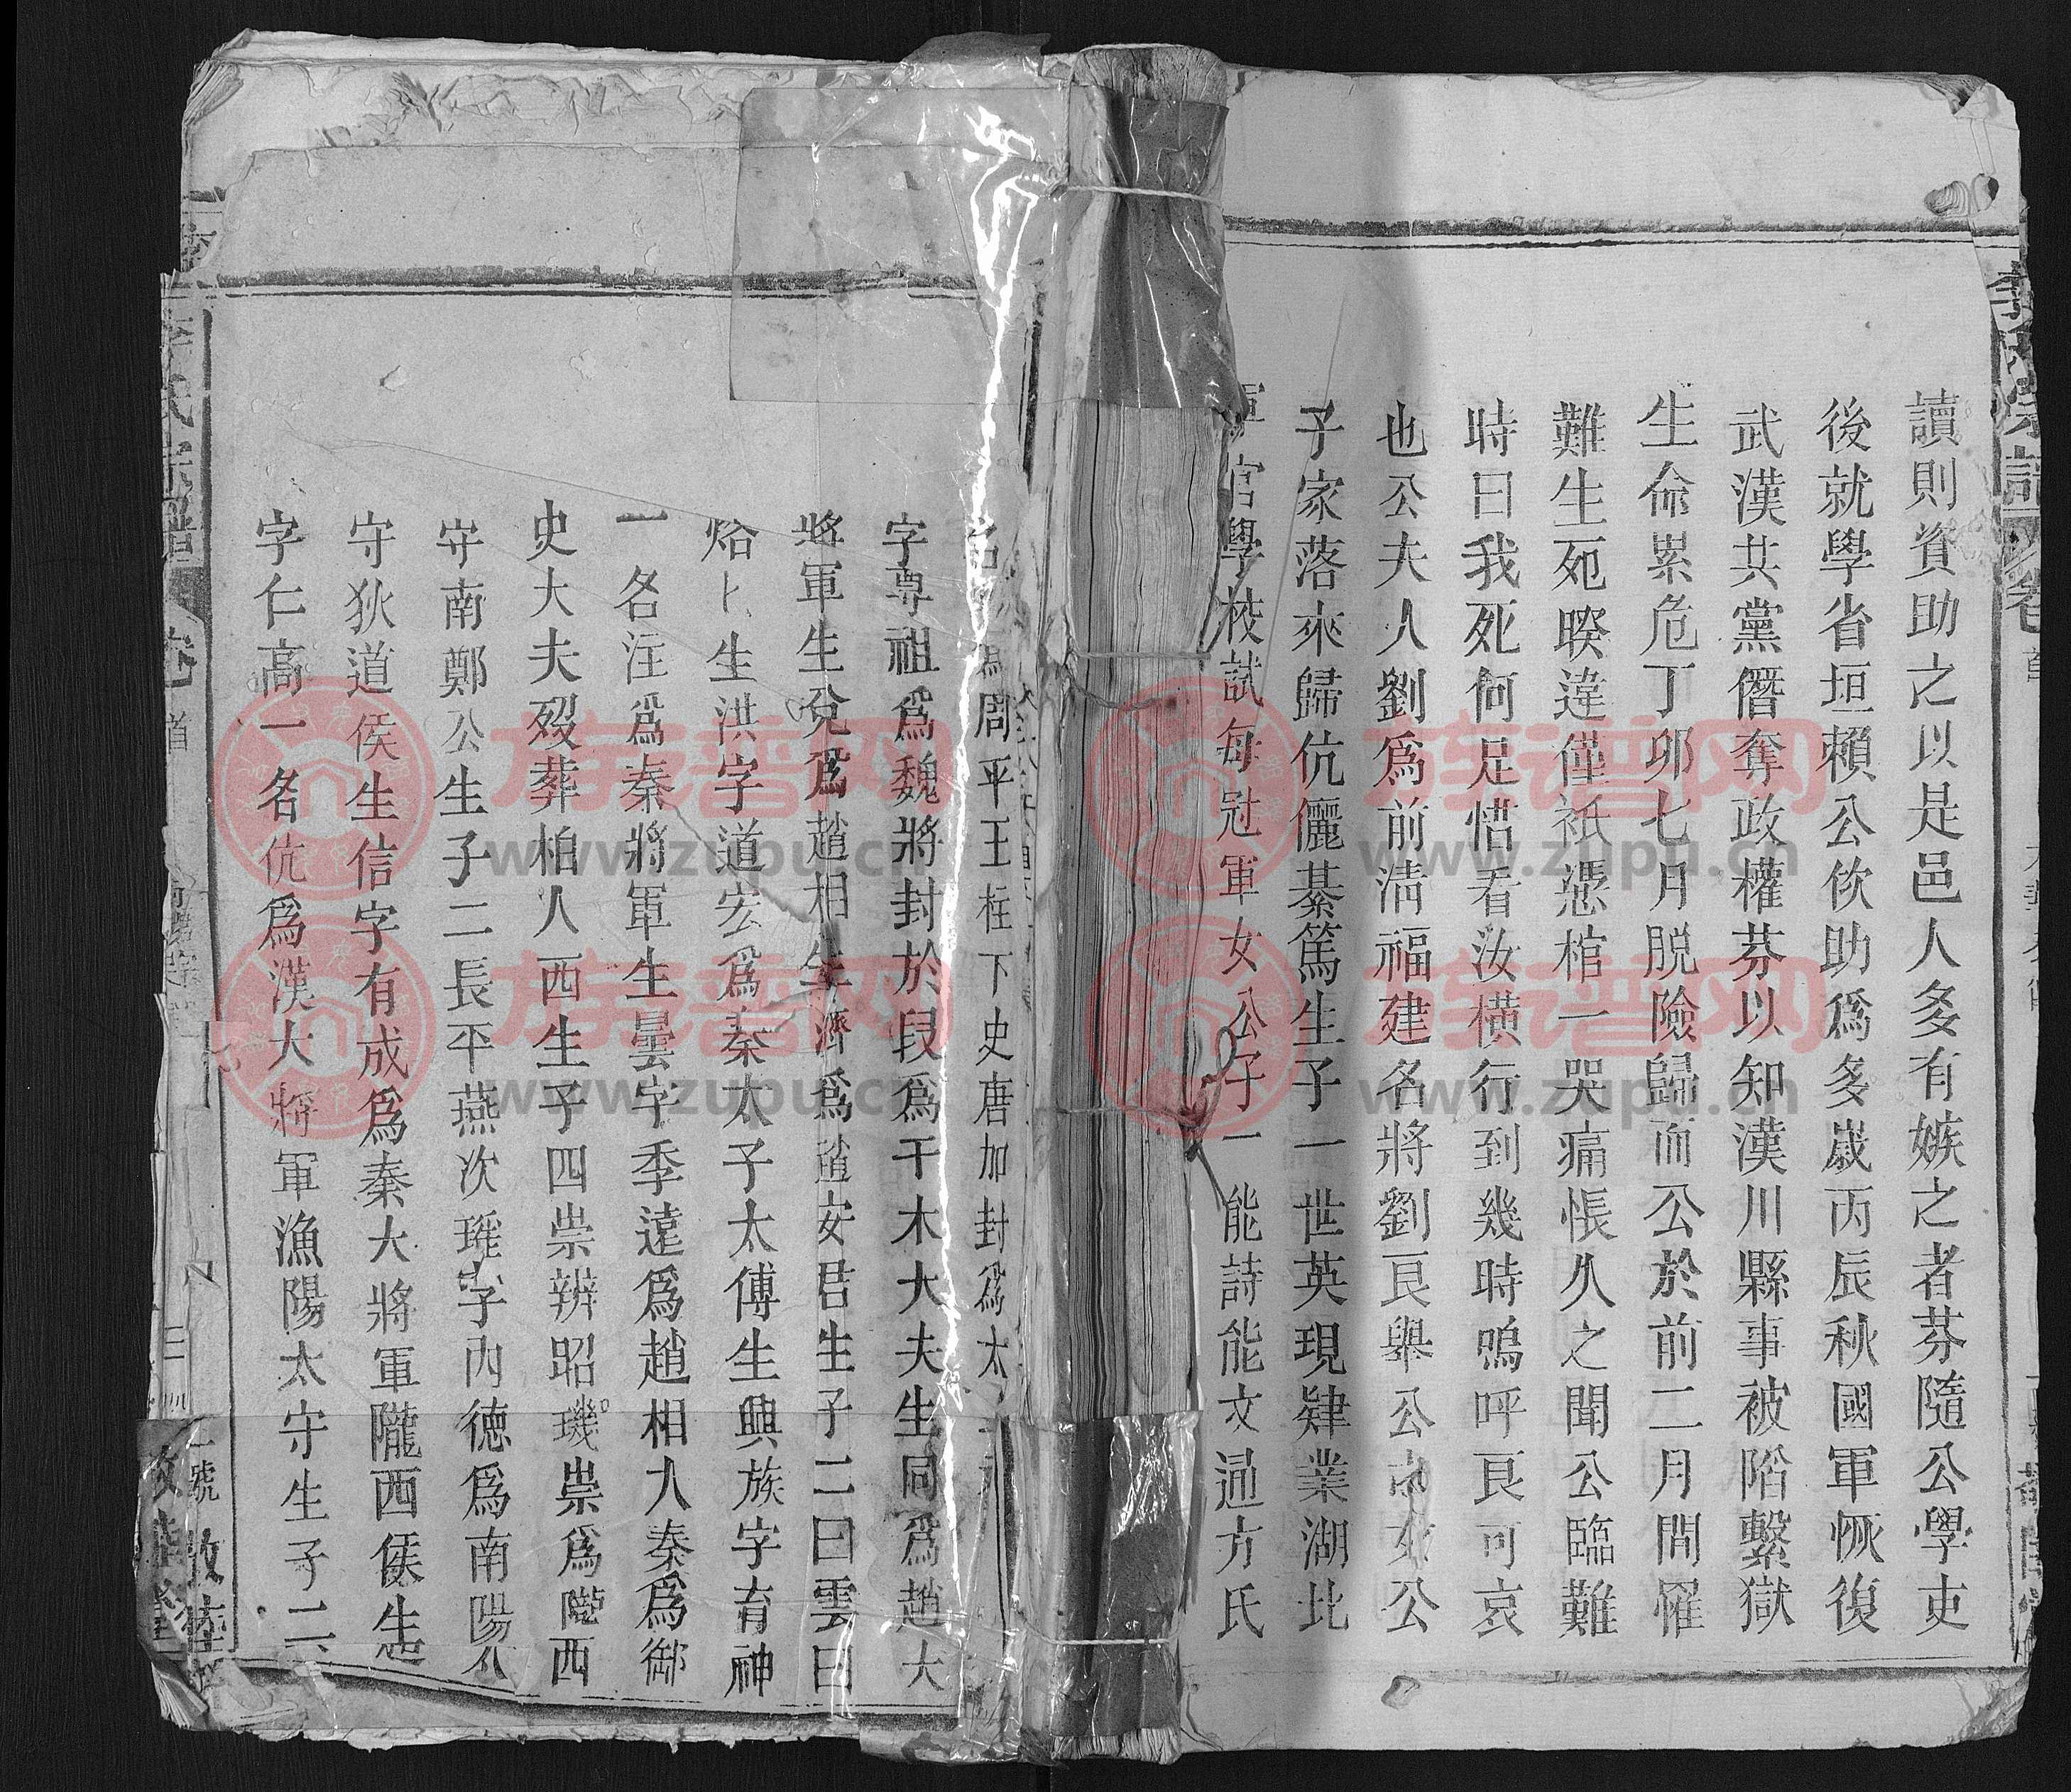 讀則資助之以是邑人多有嫉之者芬隨公學吏
後就學省垣賴公佽助爲多歲丙辰秋國軍恢復
武漢共黨僭奪政權芬以知漢川縣事被陷繫獄
生命累危丁卯七月脱險歸而公於前二月間罹
難生死暌違僅祇憑棺一哭痛悵久之聞公臨難
時曰我死何足惜看汝横行到幾時嗚呼良可哀
也公夫人劉爲前清福建名將劉良舉公女公
子家落來歸伉儷綦篤生子一世英現肄業湖北
官學校試每冠軍女公子一能詩能文適方氏
周平王在下史唐加封爲太
字尊祖爲魏將封於段爲干木大夫生同爲趙大
將軍生兌爲趙相生濟爲趙安君生子二曰雲曰
烙卜生洪字道宏爲秦太子太傅生興族字育神
一名汪爲秦將軍生曇字季遠爲趙相人秦爲御
史大夫歿葬柏人西生子四崇辨昭璣崇爲隴西
守南鄭公生子二長平燕次瑤字内德爲南陽公
守狄道侯生信字有成爲秦大將軍隴西侯生
字仁高一名伉爲漢大將軍漁陽太守生子二
李氏宗譜
卷首
www.zupu.cn
www.zupu.cn
www.zupu.cn
www.zupu.cn
族谱网
族谱网
族谱网
族谱网